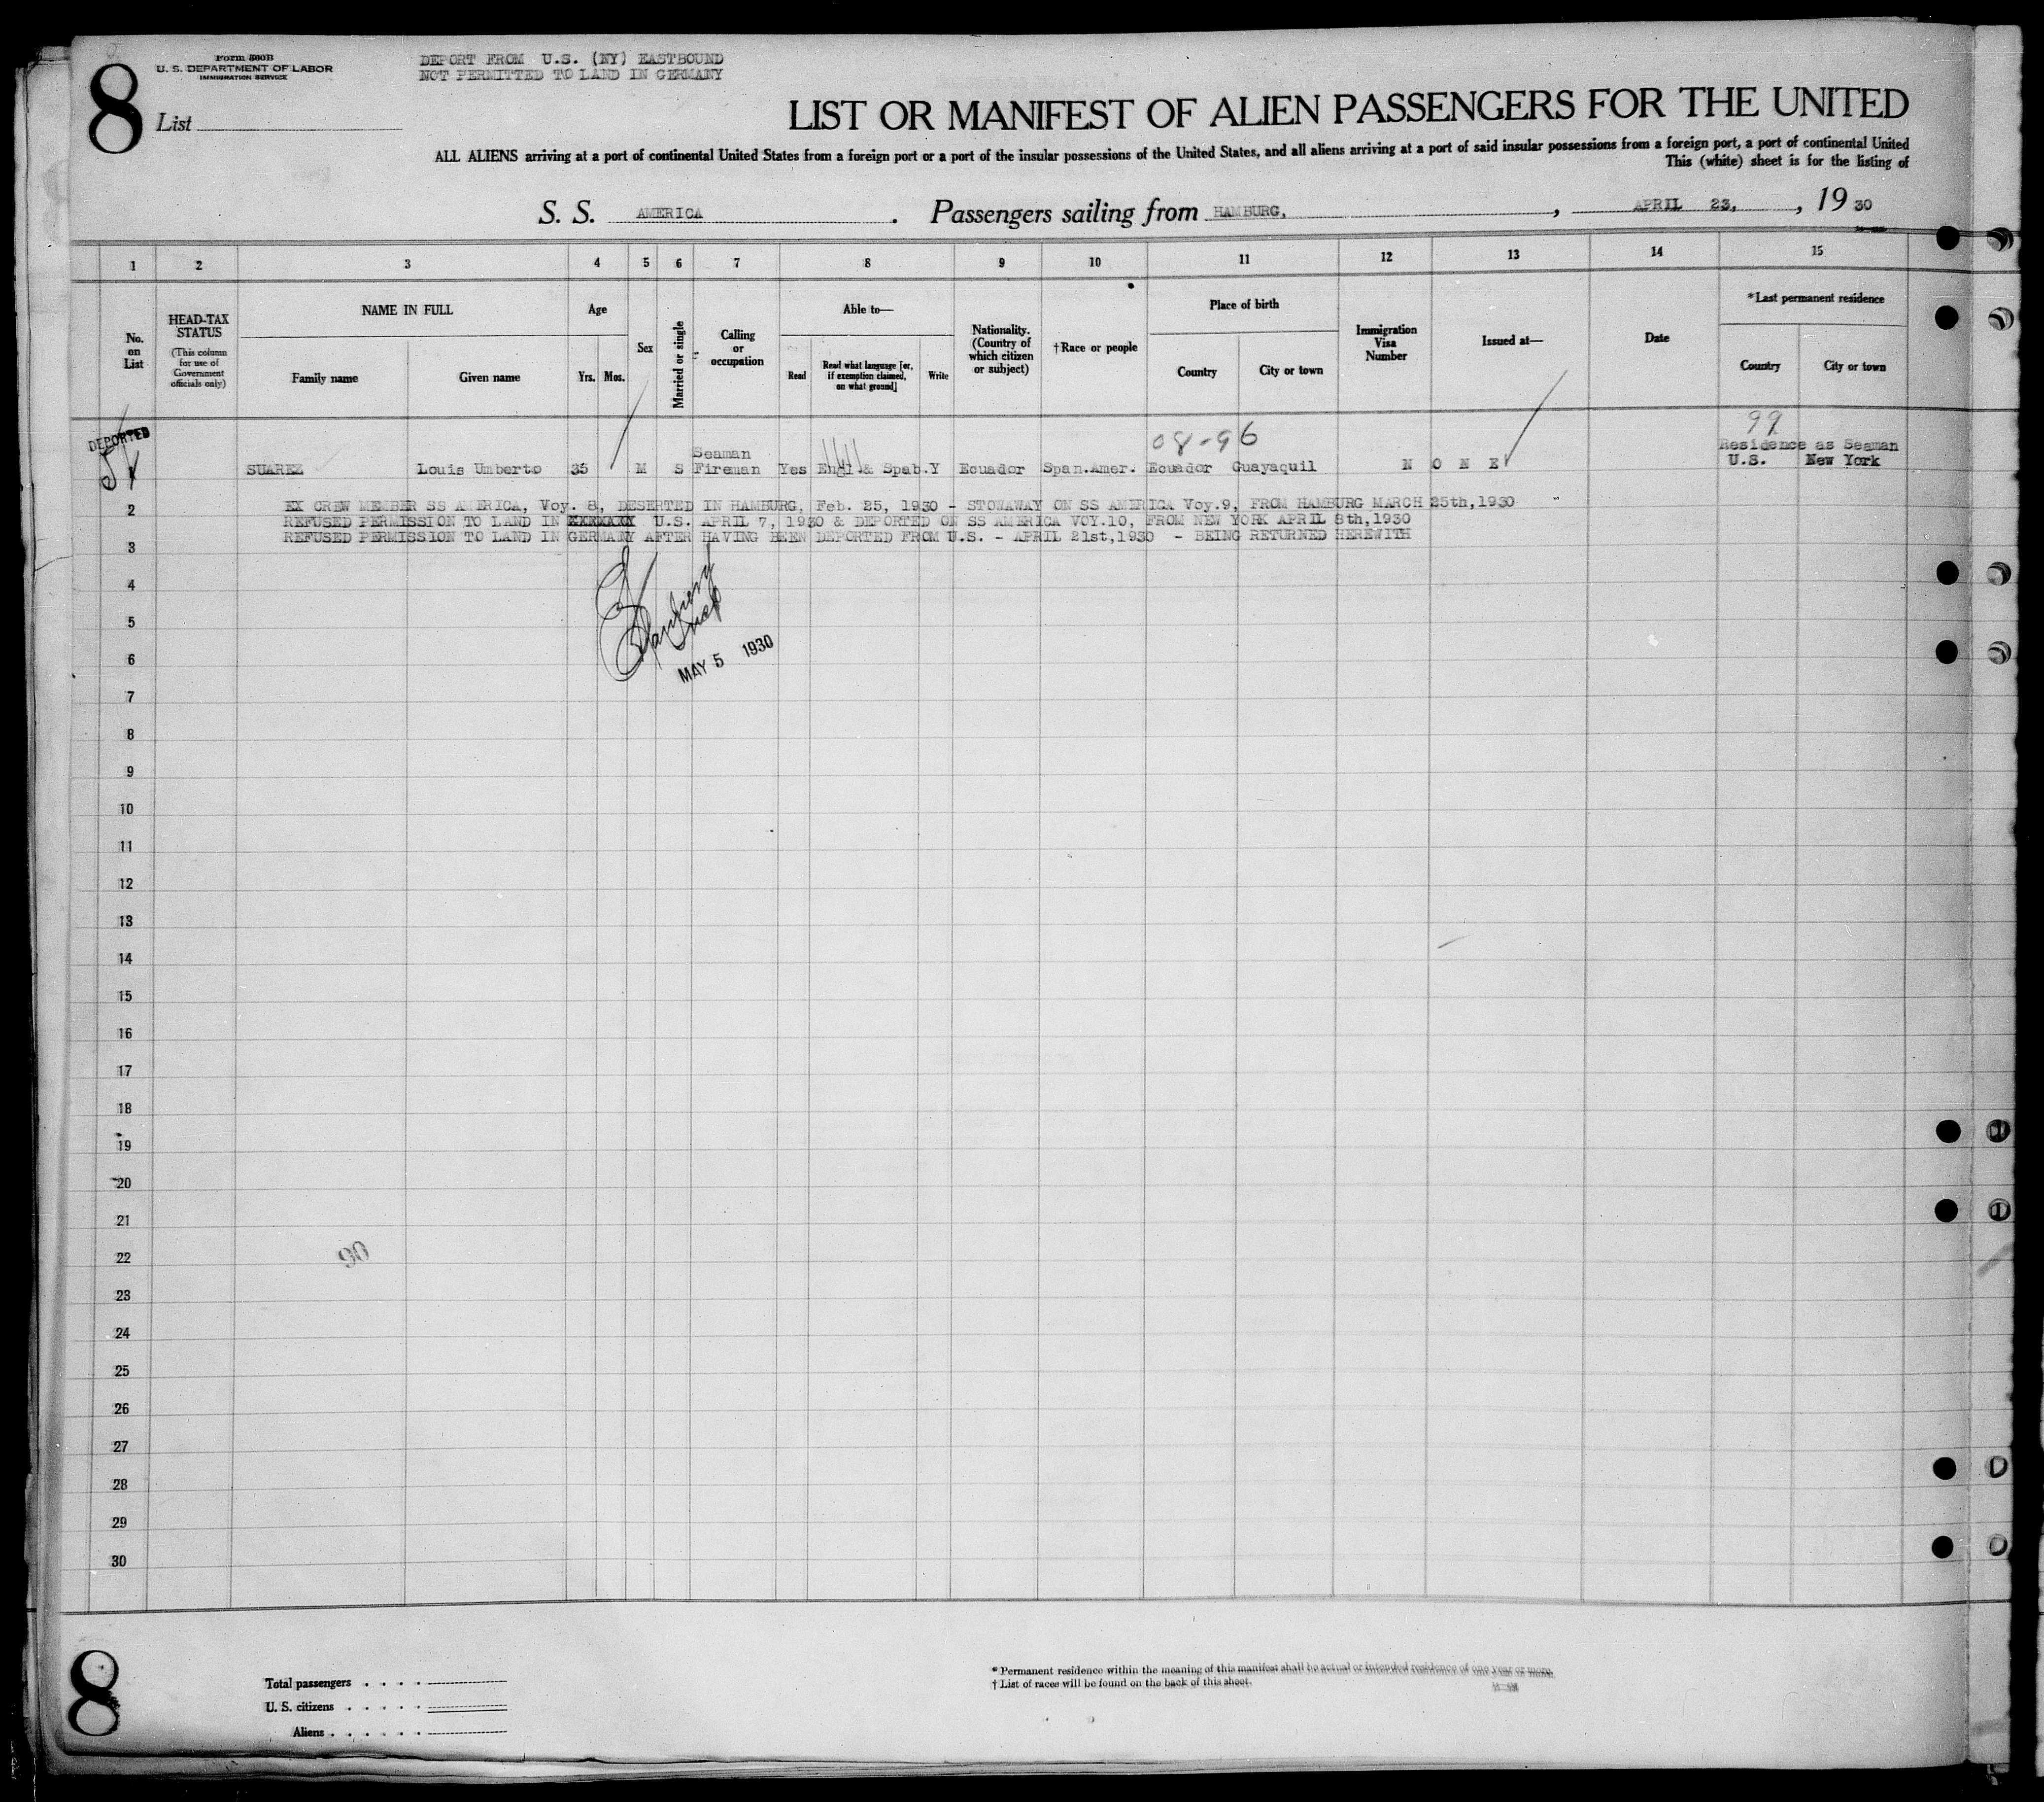 8
Form 500B
U. S. DEPARTMENT OF LABOR
IMMIGRATION SERVICE
DEPORT FROM U.S. (NY) EASTBOUND
NOT PERMITTED TO LAND IN GERMANY
List
LIST OR MANIFEST OF ALIEN PASSENGERS FOR THE UNITED
ALL ALIENS arriving at a port of continental United States from a foreign port or a port of the insular possessions of the United States, and all aliens arriving at a port of said insular possessions from a foreign port, a port of continental United
This (white) sheet is for the listing of
S. S. AMERICA. Passengers sailing from HAMBURG, , APRIL 23, , 19 30
1 2 3 4 5 6 7 8 9 10 11 12 13 14 15
No. on List
HEAD-TAX STATUS
(This column for use of Government officials only)
NAME IN FULL
Family name
Given name
Age
Yrs.
Mos.
Sex
Married or single
Calling or occupation
Able to—
Read
Read what language [or, if exemption claimed, on what ground]
Write
Nationality. (Country of which citizen or subject)
†Race or people
Place of birth
Country
City or town
Immigration Visa Number
Issued at—
Date
*Last permanent residence
Country
City or town
DEPORTED
08-96
99
Residence as Seaman
Seaman
SUAREZ Louis Umberto 35 M S Fireman Yes Engl & Spab.Y Ecuador Span.Amer. Ecuador Guayaquil N O N E U.S. New York
2 EX CREW MEMBER SS AMERICA, Voy. 8, DESERTED IN HAMBURG, Feb. 25, 1930 - STOWAWAY ON SS AMERICA Voy.9, FROM HAMBURG MARCH 25th,1930
REFUSED PERMISSION TO LAND IN XXXXXXX U.S. APRIL 7, 1930 & DEPORTED ON SS AMERICA VOY.10, FROM NEW YORK APRIL 8th,1930
REFUSED PERMISSION TO LAND IN GERMANY AFTER HAVING BEEN DEPORTED FROM U.S. - APRIL 21st,1930 - BEING RETURNED HEREWITH
3
4
5
6
MAY 5 1930
7
8
9
10
11
12
13
14
15
16
17
18
19
20
21
22
23
24
25
26
27
28
29
30
8
Total passengers
U. S. citizens
Aliens
* Permanent residence within the meaning of this manifest shall be actual or intended residence of one year or more.
† List of races will be found on the back of this sheet.